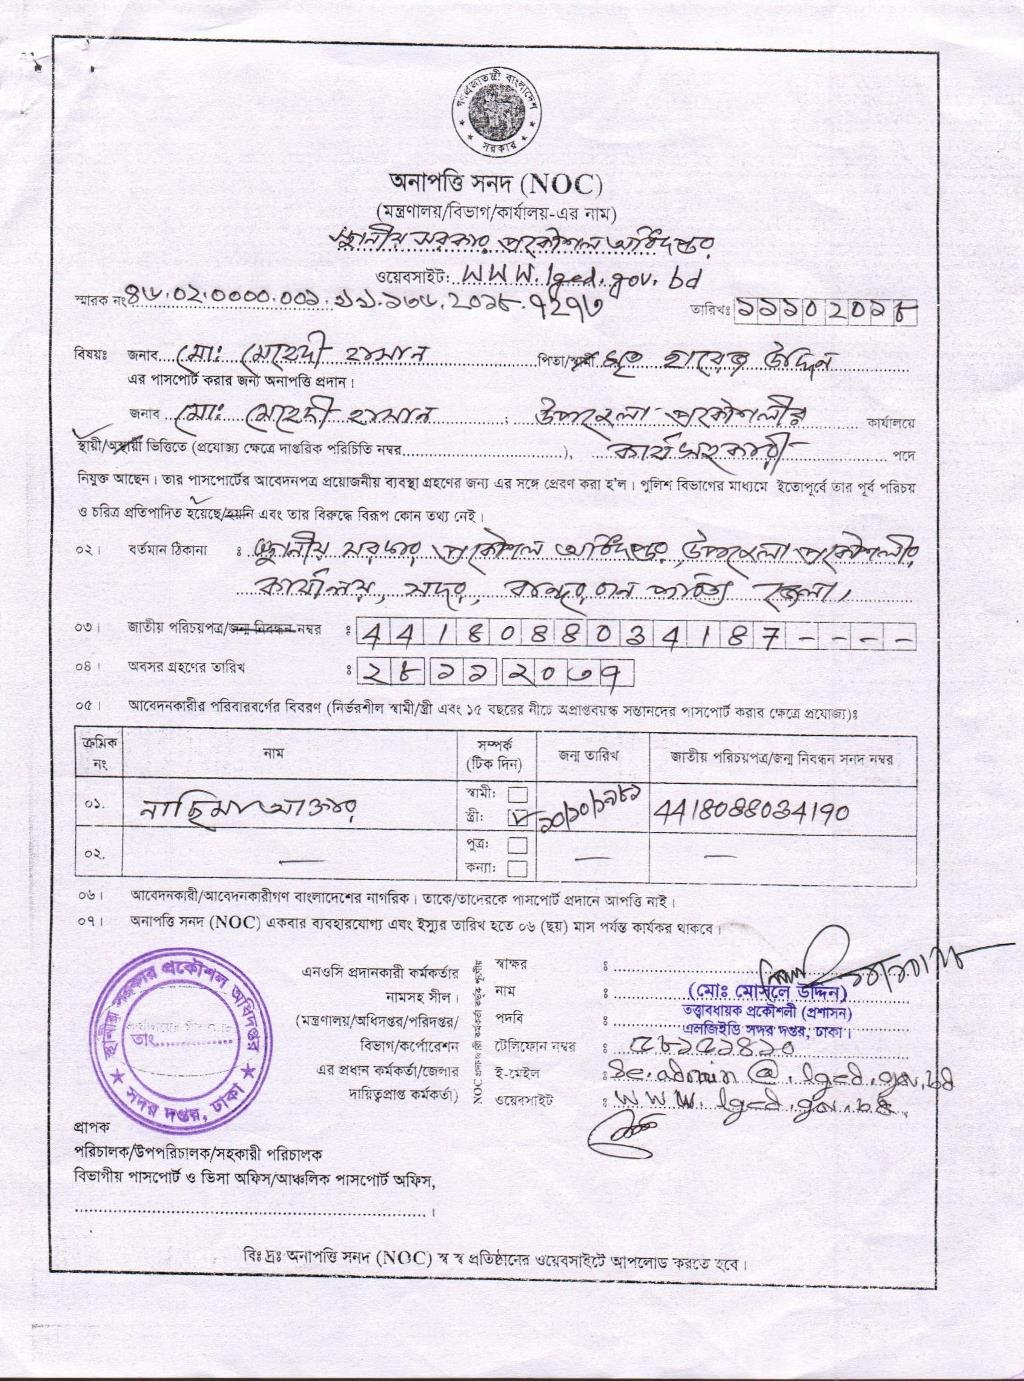 গণপ্রজাতন্ত্রী বাংলাদেশ
সরকার
অনাপত্তি সনদ (NOC)
(মন্ত্রণালয়/বিভাগ/কার্যালয়-এর নাম)
স্থানীয় সরকার প্রকৌশল অধিদপ্তর
ওয়েবসাইট: www.lged.gov.bd
স্মারক নং ৪৬.০২.০০০০.০০১.১১.১৩৬.২০১৮-৭২৭৩ তারিখঃ ১১১০২০১৮
বিষয়ঃ জনাব মোঃ মেহেদী হাসান পিতা/স্বামী মৃত হারেজ উদ্দিন
এর পাসপোর্ট করার জন্য অনাপত্তি প্রদান।
জনাব মোঃ মেহেদী হাসান ; উপজেলা প্রকৌশলীর কার্যালয়ে
স্থায়ী/অস্থায়ী ভিত্তিতে (প্রযোজ্য ক্ষেত্রে দাপ্তরিক পরিচিতি নম্বর....................), কার্যসহকারী পদে
নিযুক্ত আছেন। তার পাসপোর্টের আবেদনপত্র প্রয়োজনীয় ব্যবস্থা গ্রহণের জন্য এর সঙ্গে প্রেরণ করা হ'ল। পুলিশ বিভাগের মাধ্যমে ইতোপূর্বে তার পূর্ব পরিচয়
ও চরিত্র প্রতিপাদিত হয়েছে/হয়নি এবং তার বিরুদ্ধে বিরূপ কোন তথ্য নেই।
০২। বর্তমান ঠিকানা ঃ স্থানীয় সরকার প্রকৌশল অধিদপ্তর, উপজেলা প্রকৌশলীর
কার্যালয়, সদর, বান্দরবান পার্বত্য জেলা।
০৩। জাতীয় পরিচয়পত্র/জন্ম নিবন্ধন নম্বর ঃ 4418088034187----
০৪। অবসর গ্রহণের তারিখ ঃ ২৮১১২০৩৭
০৫। আবেদনকারীর পরিবারবর্গের বিবরণ (নির্ভরশীল স্বামী/স্ত্রী এবং ১৫ বছরের নীচে অপ্রাপ্তবয়স্ক সন্তানদের পাসপোর্ট করার ক্ষেত্রে প্রযোজ্য)ঃ
ক্রমিক নং নাম সম্পর্ক (টিক দিন) জন্ম তারিখ জাতীয় পরিচয়পত্র/জন্ম নিবন্ধন সনদ নম্বর
০১. নাছিমা আক্তার স্বামী: স্ত্রী: ১০/১০/১৯৮১ 4418088034190
০২. — পুত্র: কন্যা: — —
০৬। আবেদনকারী/আবেদনকারীগণ বাংলাদেশের নাগরিক। তাকে/তাদেরকে পাসপোর্ট প্রদানে আপত্তি নাই।
০৭। অনাপত্তি সনদ (NOC) একবার ব্যবহারযোগ্য এবং ইস্যুর তারিখ হতে ০৬ (ছয়) মাস পর্যন্ত কার্যকর থাকবে।
স্থানীয় সরকার প্রকৌশল অধিদপ্তর
তাং..............
সদর দপ্তর, ঢাকা
এনওসি প্রদানকারী কর্মকর্তার
নামসহ সীল।
(মন্ত্রণালয়/অধিদপ্তর/পরিদপ্তর/
বিভাগ/কর্পোরেশন
এর প্রধান কর্মকর্তা/জেলার
দায়িত্বপ্রাপ্ত কর্মকর্তা)
স্বাক্ষর ঃ
নাম ঃ (মোঃ মোসলে উদ্দিন)
পদবি ঃ তত্ত্বাবধায়ক প্রকৌশলী (প্রশাসন)
এলজিইডি সদর দপ্তর, ঢাকা।
টেলিফোন নম্বর ঃ ৫৮১৫১৪১০
ই-মেইল ঃ se.admin@.lged.gov.bd
ওয়েবসাইট ঃ www.lged.gov.bd
প্রাপক
পরিচালক/উপপরিচালক/সহকারী পরিচালক
বিভাগীয় পাসপোর্ট ও ভিসা অফিস/আঞ্চলিক পাসপোর্ট অফিস,
..............................................।
বিঃ দ্রঃ অনাপত্তি সনদ (NOC) স্ব স্ব প্রতিষ্ঠানের ওয়েবসাইটে আপলোড করতে হবে।